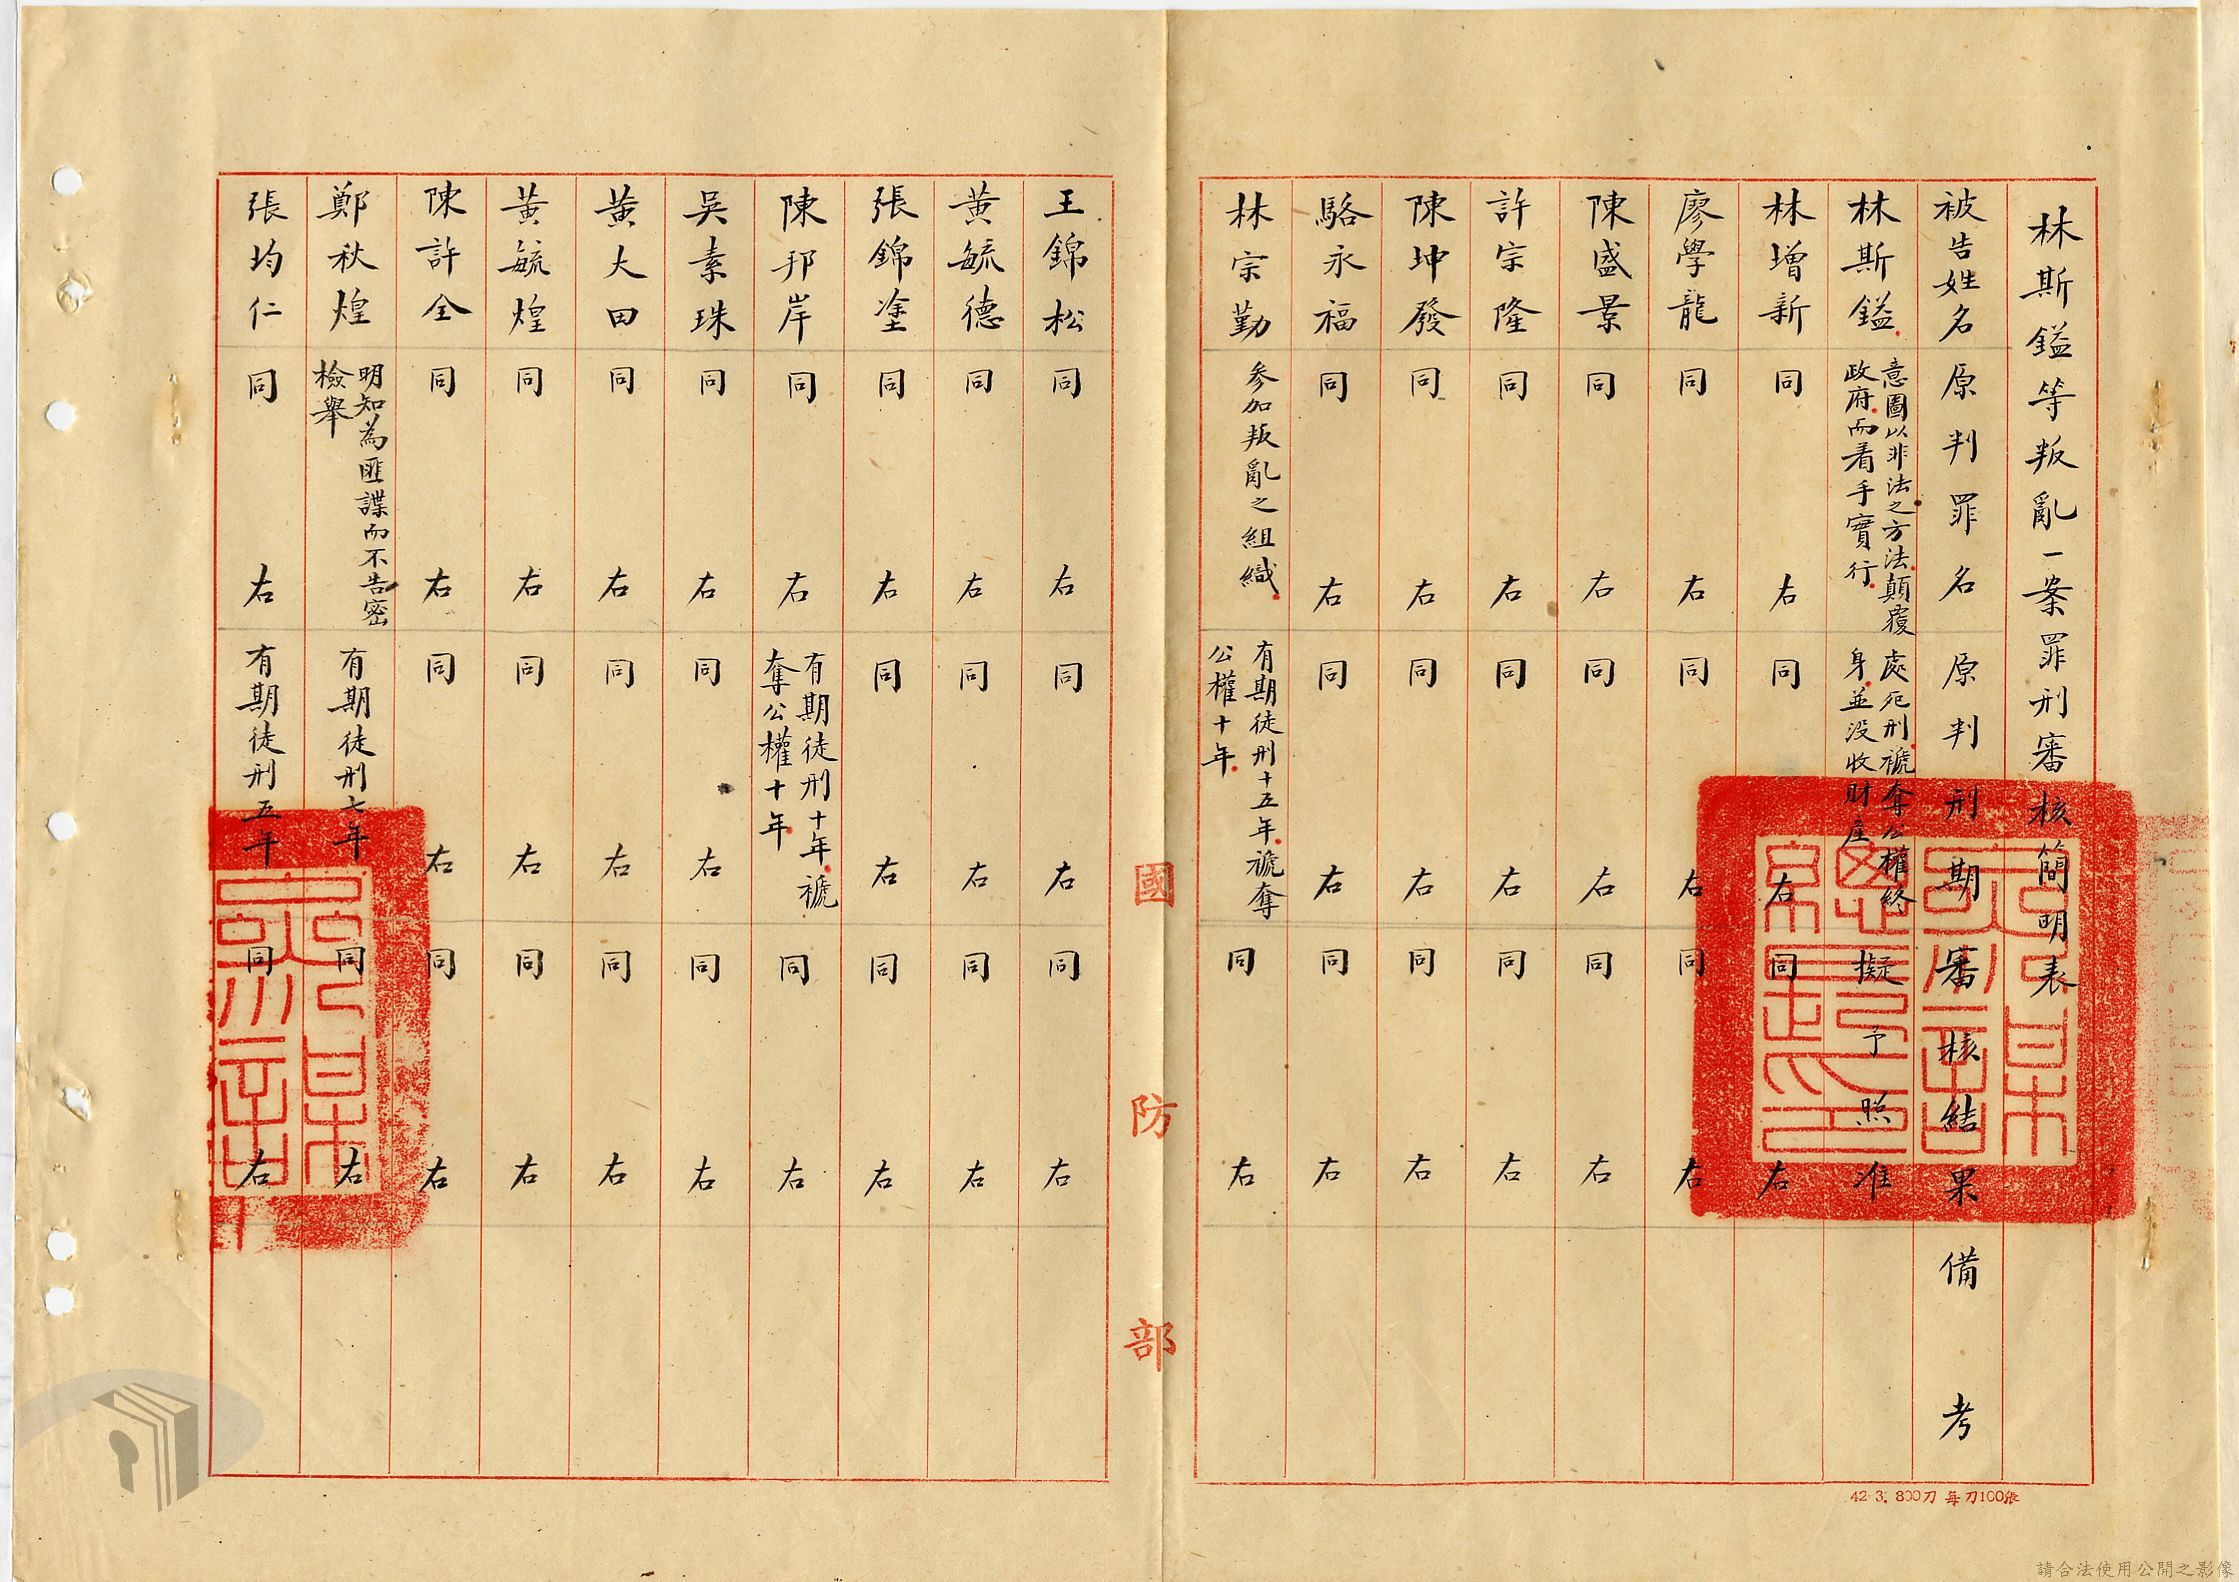 林斯鎰等叛亂一案罪刑審核簡明表
被告姓名 原判罪名 原判刑期 審核結果 備考
林斯鎰 意圖以非法之方法顛覆政府而着手實行 處死刑褫奪公權終身並沒收財產 擬予照准
林增新 同右 同右 同右
廖學龍 同右 同右 同右
陳盛景 同右 同右 同右
許宗隆 同右 同右 同右
陳坤發 同右 同右 同右
駱永福 同右 同右 同右
林宗勤 參加叛亂之組織 有期徒刑十五年褫奪公權十年 同右
國防部
王錦松 同右 同右 同右
黃毓德 同右 同右 同右
張錦塗 同右 同右 同右
陳邦岸 同右 有期徒刑十年褫奪公權十年 同右
吳素珠 同右 同右 同右
黃大田 同右 同右 同右
黃毓煌 同右 同右 同右
陳許全 同右 同右 同右
鄭秋煌 明知為匪諜而不告密檢舉 有期徒刑七年 同右
張均仁 同右 有期徒刑五年 同右
42.3. 800刀 每刀100張
請合法使用公開之影像